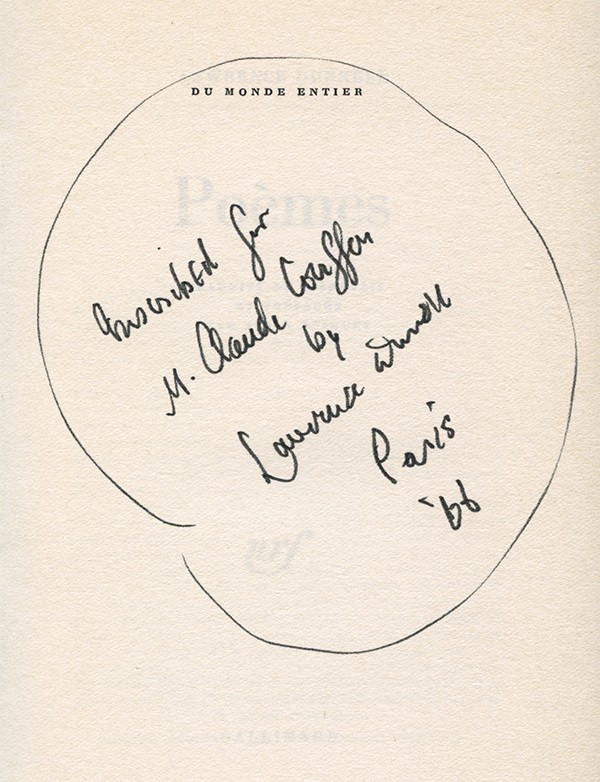 DU MONDE ENTIER
Poèmes
Inscribed for
M. Claude Couffon
by
Lawrence Durrell
Paris
'66
nrf
GALLIMARD